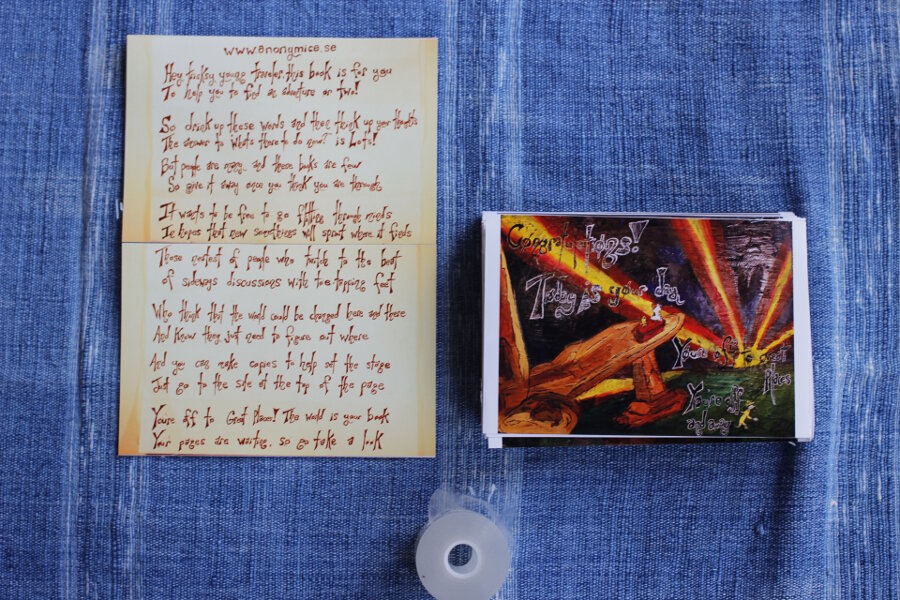 www.anonymice.se
Hey tricksy young traveler, this book is for you
To help you to find an adventure or two!
So drink up these words and then think up your thoughts
The answer to "What's there to do now?" is Lots!
But people are many, and these books are few
So give it away once you think you are through
It wants to be free to go flitting through minds
It hopes that new somethings will sprout where it finds
Those nosiest of people who twitch to the beat
of sideways discussions with toe-tapping feet
Who think that the world could be changed here and there
And Know they just need to figure out where
And you can make copies to help set the stage
Just go to the site at the top of the page
You're off to Great Places! The world is your book
Your pages are waiting, so go take a look
Congratulations!
Today is your day
You're off to Great
Places
You're off
and away